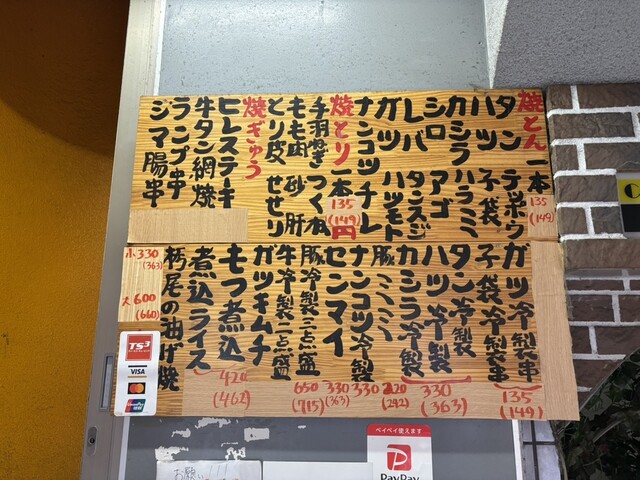 焼とん一本
135
(149)
タン テッポウ
ハツ 子袋
カシラ ハラミ
シロ アゴ
レバ タンスジ
ガツ ハツモト
ナンコツ チレ
焼とり一本
135
(149)
円
手羽ねぎ つくね
もも肉 砂肝
とり皮 せせり
焼ぎゅう
ヒレステーキ
牛タン網焼
ランプ串
シマ腸串
ガツ冷製串
子袋冷製串
135
(149)
タン冷製
ハツ冷製
カシラ冷製
330
(363)
豚ミミミミ
220
(242)
ナンコツ冷製
330
センマイ
330
(363)
豚冷製三点盛
650
(715)
牛冷製二点盛
ガツキムチ
もつ煮込
420
(462)
煮込ライス
栃尾の油げ焼
小 330
(363)
大 600
(660)
TS3
VISA
mastercard
UnionPay
ペイペイ使えます
PayPay
お願い!!!